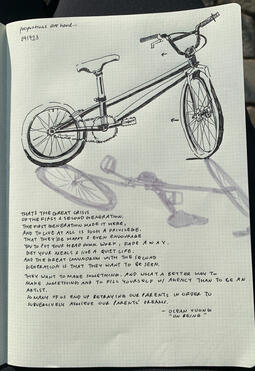 proportions are hard...
THAT'S THE GREAT CRISIS
OF THE FIRST & SECOND GENERATION.
THE FIRST GENERATION MADE IT HERE,
AND TO LIVE AT ALL IS SUCH A PRIVILEGE.
THAT THEY'RE HAPPY & EVEN ENCOURAGE
YOU TO PUT YOUR HEAD DOWN. WORK, FADE AWAY,
GET YOUR MEALS & LIVE A QUIET LIFE.
AND THE GREAT CONUNDRUM WITH THE SECOND
GENERATION IS THAT THEY WANT TO BE SEEN.
THEY WANT TO MAKE SOMETHING. AND WHAT A BETTER WAY TO
MAKE SOMETHING AND TO FILL YOURSELF W/ AGENCY THAN TO BE AN
ARTIST.
SO MANY OF US END UP BETRAYING OUR PARENTS IN ORDER TO
SUBVERSIVELY ACHIEVE OUR PARENTS' DREAMS.
- OCEAN VUONG
"ON BEING"